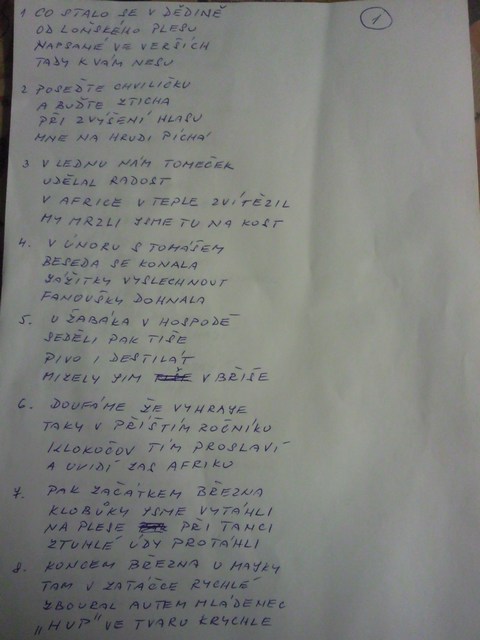 1
1 CO STALO SE V DĚDINĚ
OD LOŇSKÉHO PLESU
NAPSANÉ VE VERŠÍCH
TADY K VÁM NESU
2 POSEĎTE CHVILIČKU
A BUĎTE ZTICHA
PŘI ZVÝŠENÍ HLASU
MNE NA HRUDI PÍCHÁ
3 V LEDNU NÁM TOMEČEK
UDĚLAL RADOST
V AFRICE V TEPLE ZVÍTĚZIL
MY MRZLI JSME TU NA KOST
4. V ÚNORU S TOMÁŠEM
BESEDA SE KONALA
ZÁŽITKY VYSLECHNOUT
FANOUŠKY DOHNALA
5. U ŽABÁKA V HOSPODĚ
SEDĚLI PAK TIŠE
PIVO I DESTILÁT
MIZELY JIM V BŘIŠE
6. DOUFÁME ŽE VYHRAJE
TAKY V PŘÍŠTÍM ROČNÍKU
I KLOKOČOV TÍM PROSLAVÍ
A UVIDÍ ZAS AFRIKU
7. PAK ZAČÁTKEM BŘEZNA
KLOBÚKY JSME VYTÁHLI
NA PLESE PŘI TANCI
ZTUHLÉ ÚDY PROTÁHLI
8. KONCEM BŘEZNA U MAJKY
TAM V ZATÁČCE RYCHLÉ
ZBOURAL AUTEM MLÁDENEC
„HUP" VE TVARU KRYCHLE